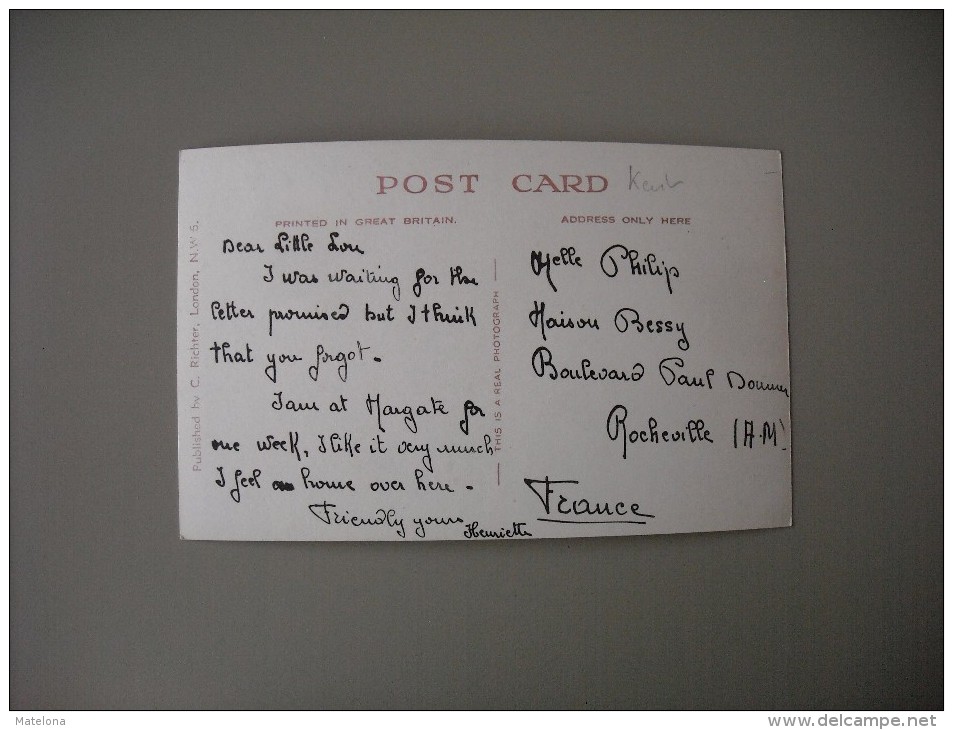 POST CARD Kent
PRINTED IN GREAT BRITAIN.
ADDRESS ONLY HERE
Published by C. Richter, London, N.W 6.
Dear Little Lou
I was waiting for the
letter promised but I think
that you forgot.
I am at Margate for
one week, I like it very much
I feel home over here.
Friendly yours
Henriette
THIS IS A REAL PHOTOGRAPH
Melle Philip
Maison Bessy
Boulevard Paul Doumer
Rocheville (A.M)
France
Matelona
www.delcampe.net